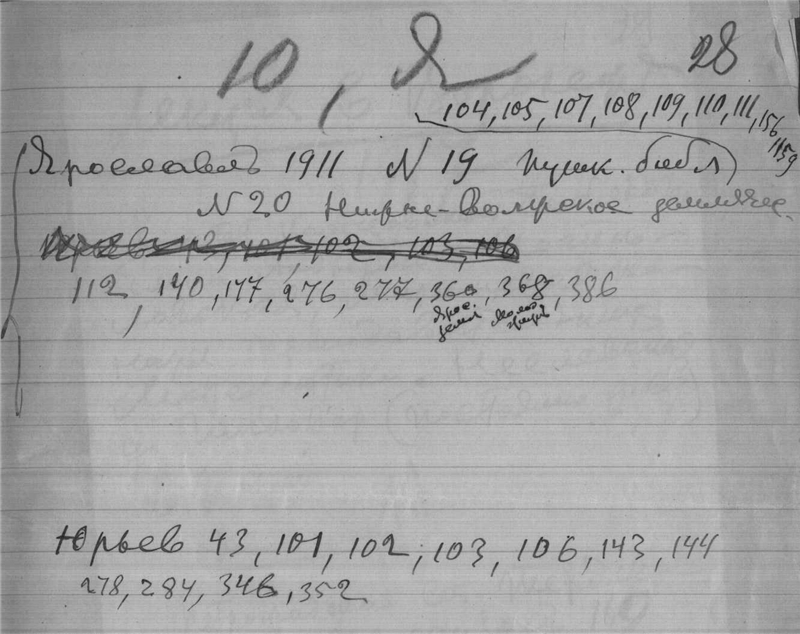 Ю, Я
28
104, 105, 107, 108, 109, 110, 111, 156, 159
Ярославль 1911 N 19 Пушк. библ
N 20
Юрьев 43, 101, 102, 103, 106
112, 140, 177, 276, 277, 360, 368, 386
Ярос.
земл
Юрьев 43, 101, 102, 103, 106, 143, 144
278, 284, 346, 352